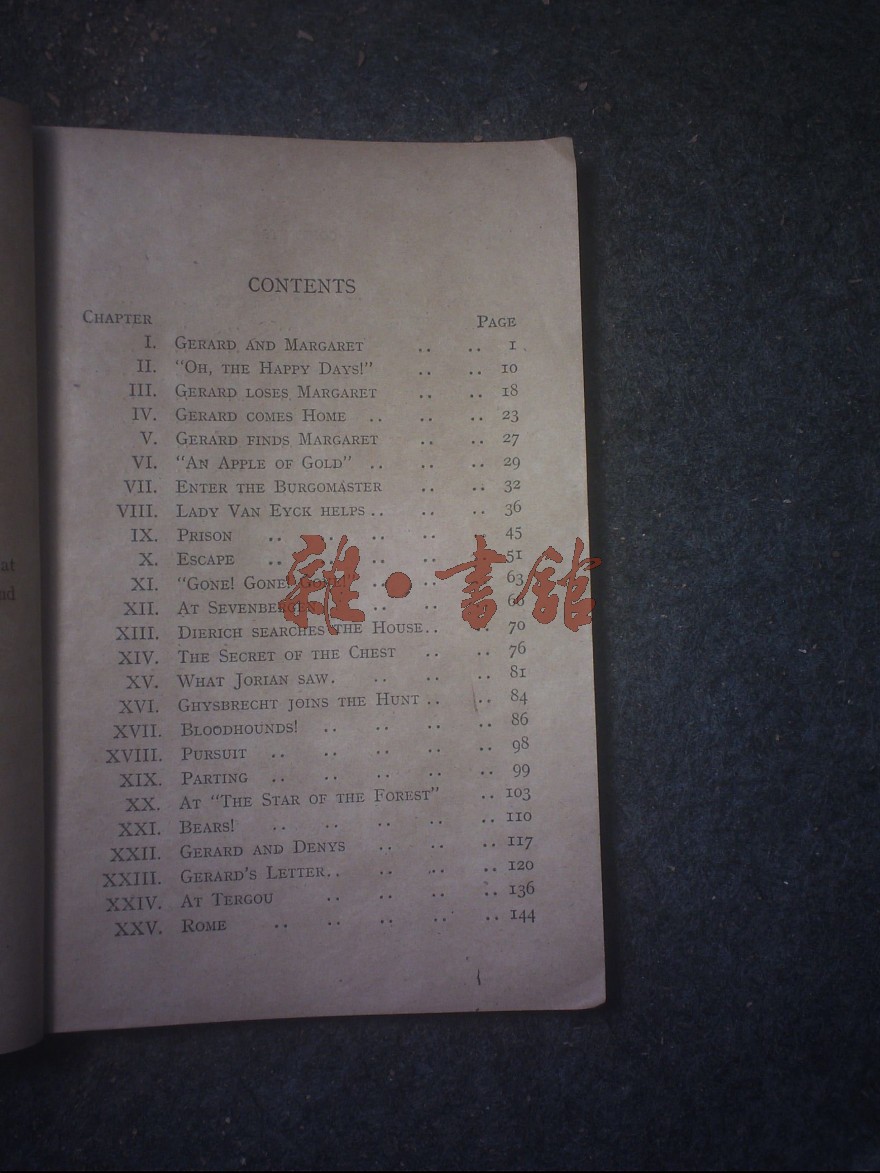 CONTENTS
CHAPTER PAGE
I. GERARD AND MARGARET .. .. 1
II. "OH, THE HAPPY DAYS!" .. .. 10
III. GERARD LOSES MARGARET .. .. 18
IV. GERARD COMES HOME .. .. .. 23
V. GERARD FINDS MARGARET .. .. 27
VI. "AN APPLE OF GOLD" .. .. .. 29
VII. ENTER THE BURGOMASTER .. .. 32
VIII. LADY VAN EYCK HELPS .. .. .. 36
IX. PRISON .. .. .. .. .. 45
X. ESCAPE .. .. .. .. .. 51
XI. "GONE! GONE! GONE!" .. .. .. 63
XII. AT SEVENBERGEN .. .. .. 66
XIII. DIERICH SEARCHES THE HOUSE .. .. 70
XIV. THE SECRET OF THE CHEST .. .. 76
XV. WHAT JORIAN SAW. .. .. .. 81
XVI. GHYSBRECHT JOINS THE HUNT .. .. 84
XVII. BLOODHOUNDS! .. .. .. .. 86
XVIII. PURSUIT .. .. .. .. .. 98
XIX. PARTING .. .. .. .. .. 99
XX. AT "THE STAR OF THE FOREST" .. 103
XXI. BEARS! .. .. .. .. .. 110
XXII. GERARD AND DENYS .. .. .. 117
XXIII. GERARD'S LETTER .. .. .. .. 120
XXIV. AT TERGOU .. .. .. .. 136
XXV. ROME .. .. .. .. .. 144
雜·書館